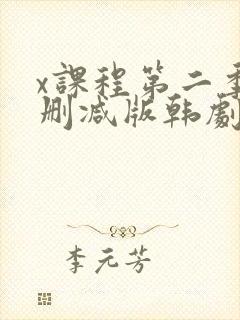 x課程第二季
删减版韩劇
李元芳